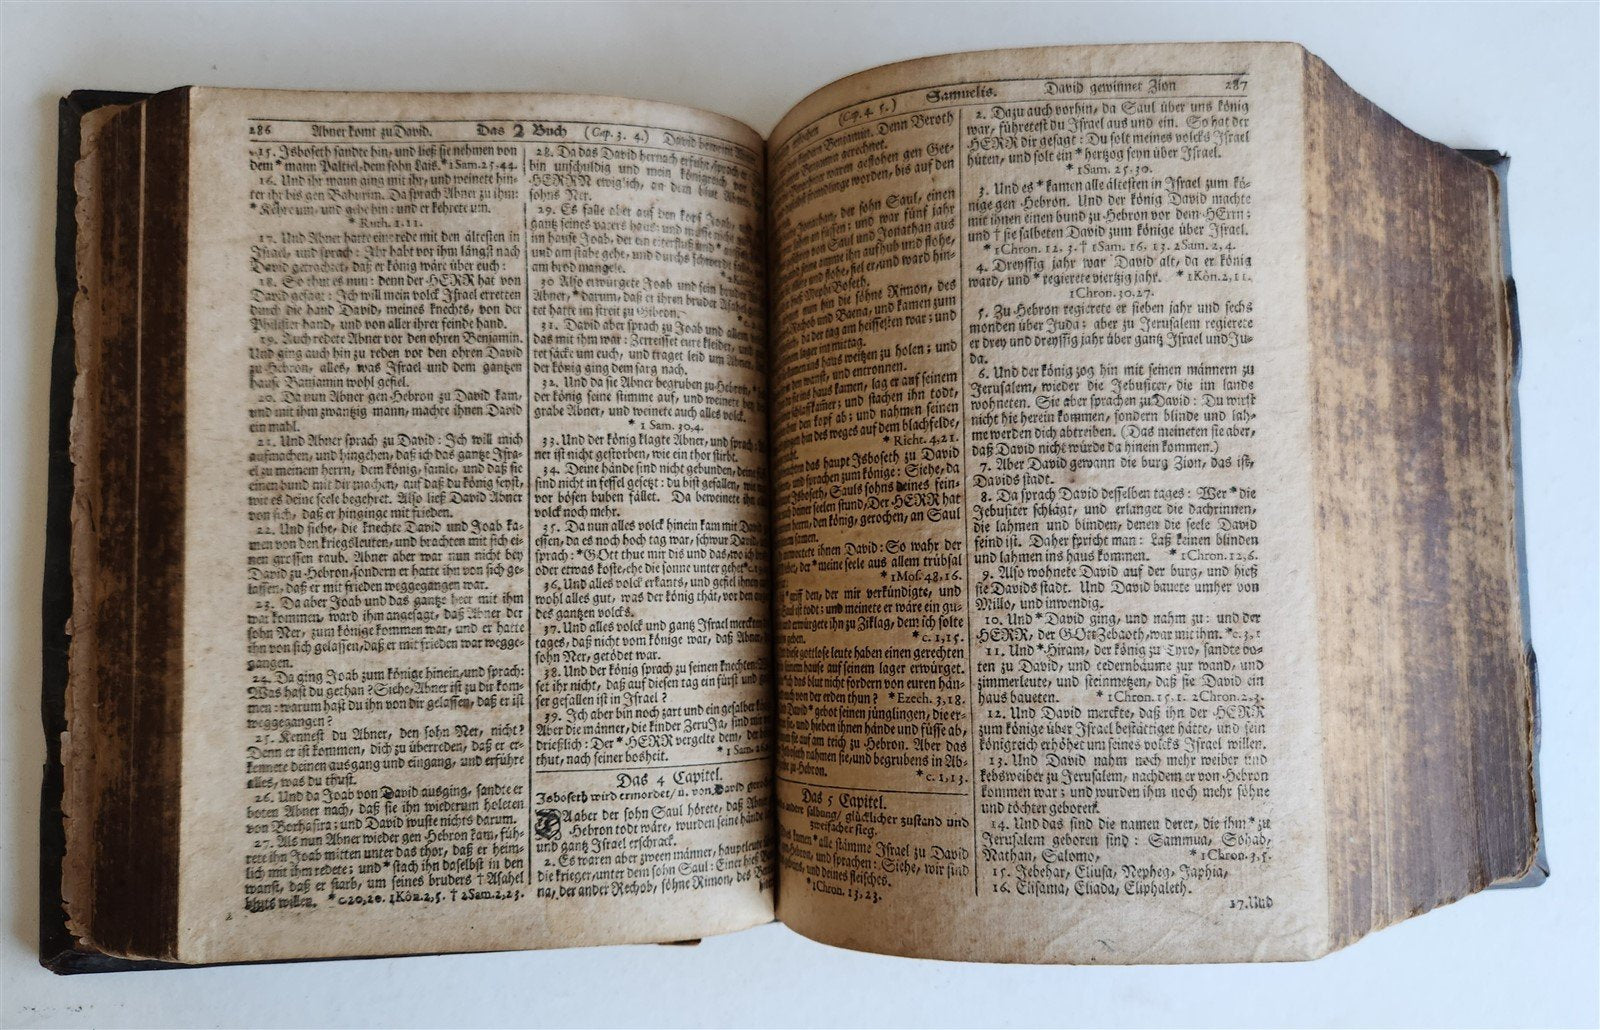 286 Abner komt zu David. Das 2 Buch (Cap. 3. 4.) David beweinet
15. Isboseth sandte hin, und ließ sie nehmen von
dem * mann Paltiel, dem sohn Lais. * 1 Sam. 25, 44.
16. Und ihr mann ging mit ihr, und weinete hin-
ter ihr bis gen Bahurim. Da sprach Abner zu ihm:
* Kehre um, und gehe hin: und er kehrete um.
* Ruth. 1. 11.
17. Und Abner hatte eine rede mit den ältesten in
Israel, und sprach: Ihr habt vor ihm längst nach
David getrachtet, daß er könig wäre über euch:
18. So thut es nun: denn der HERR hat von
David gesagt: Ich will mein volck Israel erretten
durch die hand David, meines knechts, von der
Philister hand, und von aller ihrer feinde hand.
19. Auch redete Abner vor den ohren Benjamin.
Und ging auch hin zu reden vor den ohren David
zu Hebron, alles, was Israel und dem gantzen
hause Benjamin wohl gefiel.
20. Da nun Abner gen Hebron zu David kam,
und mit ihm zwantzig mann, machte ihnen David
ein mahl.
21. Und Abner sprach zu David: Ich will mich
aufmachen, und hingehen, daß ich das gantze Isra-
el zu meinem herrn, dem könig, samle, und daß sie
einen bund mit dir machen, auf daß du könig seyst,
wie es deine seele begehret. Also ließ David Abner
von sich, daß er hinginge mit frieden.
22. Und siehe, die knechte David und Joab ka-
men von den kriegsleuten, und brachten mit sich ei-
nen grossen raub. Abner aber war nun nicht bey
David zu Hebron, sondern er hatte ihn von sich ge-
lassen, daß er mit frieden weggegangen war.
23. Da aber Joab und das gantze heer mit ihm
war kommen, ward ihm angesagt, daß Abner der
sohn Ner, zum könige kommen war, und er hatte
ihn von sich gelassen, daß er mit frieden war wegge-
gangen.
24. Da ging Joab zum könige hinein, und sprach:
Was hast du gethan? Siehe, Abner ist zu dir kom-
men: warum hast du ihn von dir gelassen, daß er ist
weggegangen?
25. Kennest du Abner, den sohn Ner, nicht?
Denn er ist kommen, dich zu überreden, daß er er-
kennete deinen ausgang und eingang, und erführe
alles, was du thust.
26. Und da Joab von David ausging, sandte er
boten Abner nach, daß sie ihn wiederum holeten
von Borhasira; und David wuste nichts darum.
27. Als nun Abner wieder gen Hebron kam, füh-
rete ihn Joab mitten unter das thor, daß er heim-
lich mit ihm redete; und * stach ihn daselbst in den
wanst, daß er starb, um seines bruders † Asahel
bluts willen. * c. 20, 20. 1 Kön. 2, 5. † 2 Sam. 2, 23.
28. Da das David hernach erfuhr, sprach
bin unschuldig und mein königreich vor
HERRN ewiglich, an dem blut
sohns Ner.
29. Es falle aber auf den kopf Joab, und
gantz seines vaters haus: und müsse nicht
im hause Joab, der ein eiterfluß und
und am stabe gehe, und durchs schwerdt falle,
am brod mangele.
30 Also erwürgete Joab und sein bruder
Abner, * darum, daß er ihren bruder Asahel
tet hatte im streit zu Gibeon.
31. David aber sprach zu Joab und allem
das mit ihm war: Zerreisset eure kleider, und
tet säcke um euch, und traget leid um Abner.
der könig ging dem sarg nach.
32. Und da sie Abner begruben zu Hebron,
der könig seine stimme auf, und weinete bey
grabe Abner, und weinete auch alles volck.
* 1 Sam. 30, 4.
33. Und der könig klagte Abner, und sprach:
ner ist nicht gestorben, wie ein thor stirbt.
34. Deine hände sind nicht gebunden, deine
sind nicht in fessel gesetzt: du bist gefallen, wie
vor bösen buben fället. Da beweinete ihn
volck noch mehr.
35. Da nun alles volck hinein kam mit David
essen, da es noch hoch tag war, schwur David,
sprach: * GOtt thue mir dis und das, wo ich
oder etwas koste, ehe die sonne unter gehet.
36. Und alles volck erkants, und gefiel ihnen
wohl alles gut, was der könig thät, vor den augen
des gantzen volcks.
37. Und alles volck und gantz Israel merckten
tages, daß nicht vom könige war, daß Abner,
sohn Ner, getödet war.
38. Und der könig sprach zu seinen knechten:
set ihr nicht, daß auf diesen tag ein fürst und
ser gefallen ist in Israel?
39. Ich aber bin noch zart und ein gesalbter
Aber die männer, die kinder ZeruJa, sind mir
drießlich: Der * HERR vergelte dem, der
thut, nach seiner bosheit.
Das 4 Capitel.
Isboseth wird ermordet/ u. von David gerochen
DA aber der sohn Saul hörete, daß Abner
Hebron todt wäre, wurden seine hände
und gantz Israel erschrack.
2. Es waren aber zween männer, hauptleute
die krieger, unter dem sohn Saul: Einer hieß
na, der ander Rechob, söhne Rimon, des
(Cap. 4. 5.) Samuelis. David gewinnet Zion 287
kindern Benjamin. Denn Beroth
Benjamin gerechnet.
waren geflohen gen Get-
frembdlinge worden, bis auf den
der sohn Saul, einen
füssen; und war fünf jahr
von Saul und Jonathan aus
amme ihn aufhub und flohe,
und flohe, fiel er, und ward hin-
MephiBoseth.
hin die söhne Rimon, des
Rechob und Baena, und kamen zum
da der tag am heissesten war; und
lager im mittag.
ins haus weitzen zu holen; und
wanst, und entronnen.
haus kamen, lag er auf seinem
schlafkamer; und stachen ihn todt,
den kopf ab; und nahmen seinen
hin des weges auf dem blachfelde,
* Richt. 4, 21.
das haupt Isboseth zu David
und sprachen zum könige: Siehe, da
Isboseth, Sauls sohns deines fein-
deiner seelen stund, Der HERR hat
herrn, den könig, gerochen, an Saul
samen.
antwortete ihnen David: So wahr der
* meine seele aus allem trübsal
* 1 Mos. 48, 16.
griff den, der mir verkündigte, und
Saul ist todt; und meinete er wäre ein gu-
und erwürgete ihn zu Ziklag, dem ich solte
geben. * c. 1, 15.
diese gottlose leute haben einen gerechten
seinem hause auf seinem lager erwürget.
das blut nicht fordern von euren hän-
euch von der erden thun? * Ezech. 3, 18.
David * gebot seinen jünglingen, die er-
sie, und hieben ihnen hände und füsse ab,
sie auf am teich zu Hebron. Aber das
Isboseth nahmen sie, und begrubens in Ab-
zu Hebron. * c. 1, 13.
Das 5 Capitel.
andere salbung/ glücklicher zustand und
zweyfacher sieg.
alle stämme Israel zu David
Hebron, und sprachen: Siehe, wir sind
gebeins, und deines fleisches.
* 1 Chron. 13, 23.
2. Dazu auch vorhin, da Saul über uns könig
war, führetest du Israel aus und ein. So hat der
HERR dir gesagt: Du solt meines volcks Israel
hüten, und solt ein * hertzog seyn über Israel.
* 1 Sam. 25. 30.
3. Und es * kamen alle ältesten in Israel zum kö-
nige gen Hebron. Und der könig David machte
mit ihnen einen bund zu Hebron vor dem HErrn;
und † sie salbeten David zum könige über Israel.
* 1 Chron. 12, 3. † 1 Sam. 16. 13. 2 Sam. 2, 4.
4. Dreyssig jahr war David alt, da er könig
ward, und * regierete viertzig jahr. * 1 Kön. 2, 11.
1 Chron. 30. 27.
5. Zu Hebron regierete er sieben jahr und sechs
monden über Juda: aber zu Jerusalem regierete
er drey und dreyssig jahr über gantz Israel und Ju-
da.
6. Und der könig zog hin mit seinen männern zu
Jerusalem, wieder die Jebusiter, die im lande
wohneten. Sie aber sprachen zu David: Du wirst
nicht hie herein kommen, sondern blinde und lah-
me werden dich abtreiben. (Das meineten sie aber,
daß David nicht würde da hinein kommen.)
7. Aber David gewann die burg Zion, das ist,
Davids stadt.
8. Da sprach David desselben tages: Wer * die
Jebusiter schlägt, und erlanget die dachrinnen,
die lahmen und blinden, denen die seele David
feind ist. Daher spricht man: Laß keinen blinden
und lahmen ins haus kommen. * 1 Chron. 12, 6.
9. Also wohnete David auf der burg, und hieß
sie Davids stadt. Und David bauete umher von
Millo, und inwendig.
10. Und * David ging, und nahm zu: und der
HERR, der GOtt Zebaoth, war mit ihm. * c. 3, 1
11. Und * Hiram, der könig zu Tyro, sandte bo-
ten zu David, und cedernbäume zur wand, und
zimmerleute, und steinmetzen, daß sie David ein
haus baueten. * 1 Chron. 15, 1. 2 Chron. 2, 3.
12. Und David merckte, daß ihn der HERR
zum könige über Israel bestättiget hätte, und sein
königreich erhöhet um seines volcks Israel willen.
13. Und David nahm noch mehr weiber und
kebsweiber zu Jerusalem, nachdem er von Hebron
kommen war; und wurden ihm noch mehr söhne
und töchter geboren.
14. Und das sind die namen derer, die ihm * zu
Jerusalem geboren sind: Sammua, Sobab,
Nathan, Salomo, * 1 Chron. 3, 5.
15. Jebehar, Elisua, Nepheg, Japhia,
16. Elisama, Eliada, Eliphaleth.
17. Und